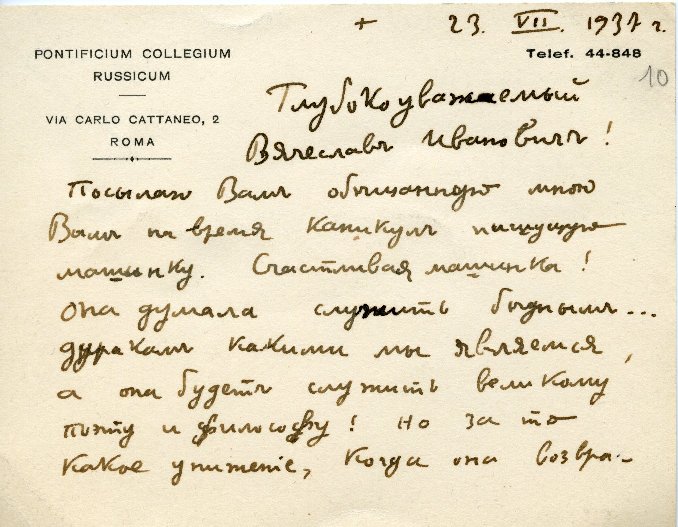 + 23. VII. 1937 г.
PONTIFICIUM COLLEGIUM
RUSSICUM
Telef. 44-848
10
VIA CARLO CATTANEO, 2
ROMA
Глубокоуважаемый
Вячеславъ Ивановичъ!
Посылаю Вамъ обѣщанную мною
Вамъ на время каникулъ пишущую
машинку. Счастливая машинка!
Она думала служить бѣднымъ...
дуракамъ какими мы являемся,
а она будетъ служить великому
поэту и философу! Но за то
какое униженіе, когда она возвра-